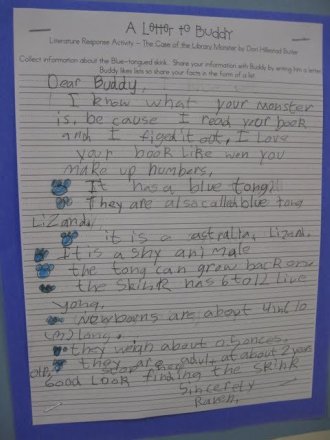 A Letter to Buddy
Literature Response Activity – The Case of the Library Monster by Dori Hillestad Butler
Collect information about the Blue-tongued skink. Share your information with Buddy by writing him a letter.
Buddy likes lists so share your facts in the form of a list.
Dear Buddy,
I know what your monster
is, be cause I read your book
and I figed it out, I Love
your book Like wen you
make up numbers,
It has a blue tong!
They are also called blue tong
Lizards,
it is a astralia, Lizard,
It is a shy ani male
the tong can grow back
the skink has 6 to 12 Live
yong,
Newborns are about 4 to 10
long,
they weigh about
they are adult, at about 2 years
old,
Good Look finding the skink
Sincerely